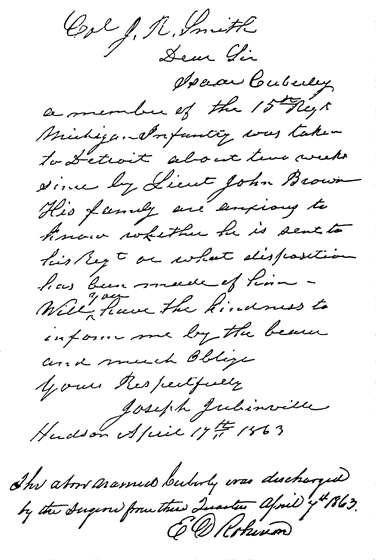 Col J. R. Smith
Dear Sir
Isaac Cuberley
a member of the 15th Regt
Michigan Infantry was taken
to Detroit about two weeks
since by Lieut John Brown
His family are anxious to
know whether he is sent to
his Regt or what disposition
has been made of him -
Will you have the kindness to
inform me by the bearer
and much Oblige
Yours Respectfully
Joseph Jubinville
Hudson April 17th 1863
The above named Cuberly was discharged
by the Surgeon from these Quarters April 7th 1863.
E D Robinson